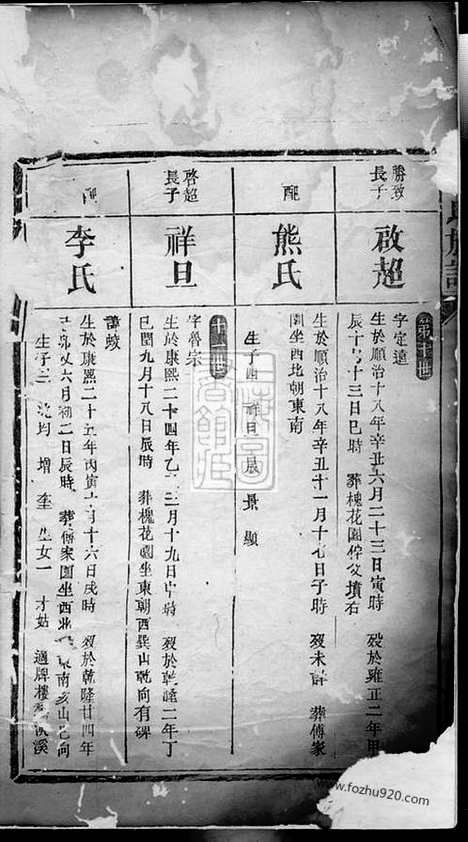 勝致長子
啟超
字定遠
生於順治十八年辛丑六月二十三日寅時 歿於雍正二年甲
辰十月十三日巳時 葬槐花園伴父墳右
配
熊氏
生於順治十八年辛丑十一月十七日子時 歿未詳 葬傅家
園坐西北朝東南
生子四 祥旦 晨 景 顯
啓超長子
祥旦
字魯宗
生於康熙二十四年乙丑三月十九日申時 歿於乾隆二年丁
巳閏九月十八日辰時 葬槐花園坐東朝西巽山乾向有碑
配
李氏
諱姣
生於康熙二十五年丙寅十月十六日戌時 歿於乾隆廿四年
己卯又六月初二日辰時 葬傅家園坐西北朝東南亥山巳向
生子三 均 增 奎 生女一 才姑 適牌樓 溪
www.fozhu920.com